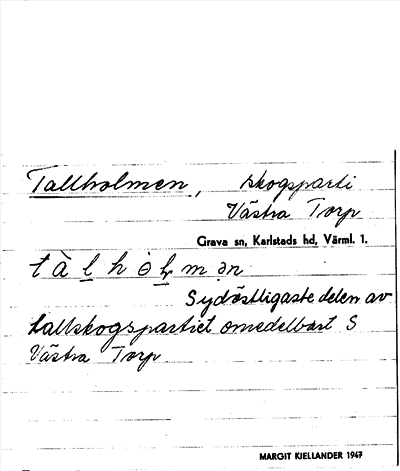 Tallholmen, skogsparti
Västra Torp
Grava sn, Karlstads hd, Värml. 1.
Sydöstligaste delen av
tallskogspartiet omedelbart S
Västra Torp
MARGIT KIELLANDER 1947